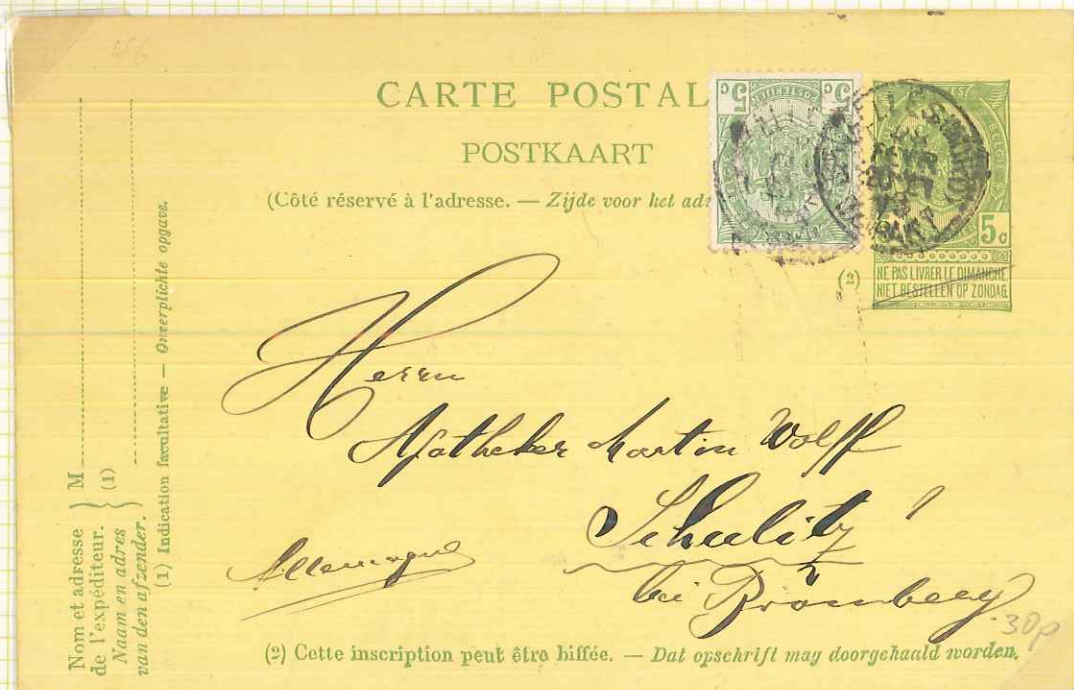 156
CARTE POSTAL
POSTKAART
(Côté réservé à l'adresse. — Zijde voor het adr
5c 5c
5c
(2)
NE PAS LIVRER LE DIMANCHE
NIET BESTELLEN OP ZONDAG
Herrn
Apotheker Martin Wolff
Schulitz
bei Bromberg
Allemagne
30p
(2) Cette inscription peut être biffée. — Dat opschrift mag doorgehaald worden.
Nom et adresse
de l'expéditeur.
Naam en adres
van den afzender.
M
(1)
(1) Indication facultative — Onverplichte opgave.